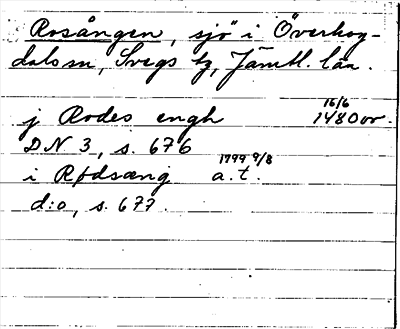 Rosången, sjö i Överhog-
dals sn, Svegs tg, Jämtl. län.
j Rodes engh 16/6 1480 or.
DN 3, s. 676
i Rødsæng 1799 9/8 a.t.
d:o, s. 677.